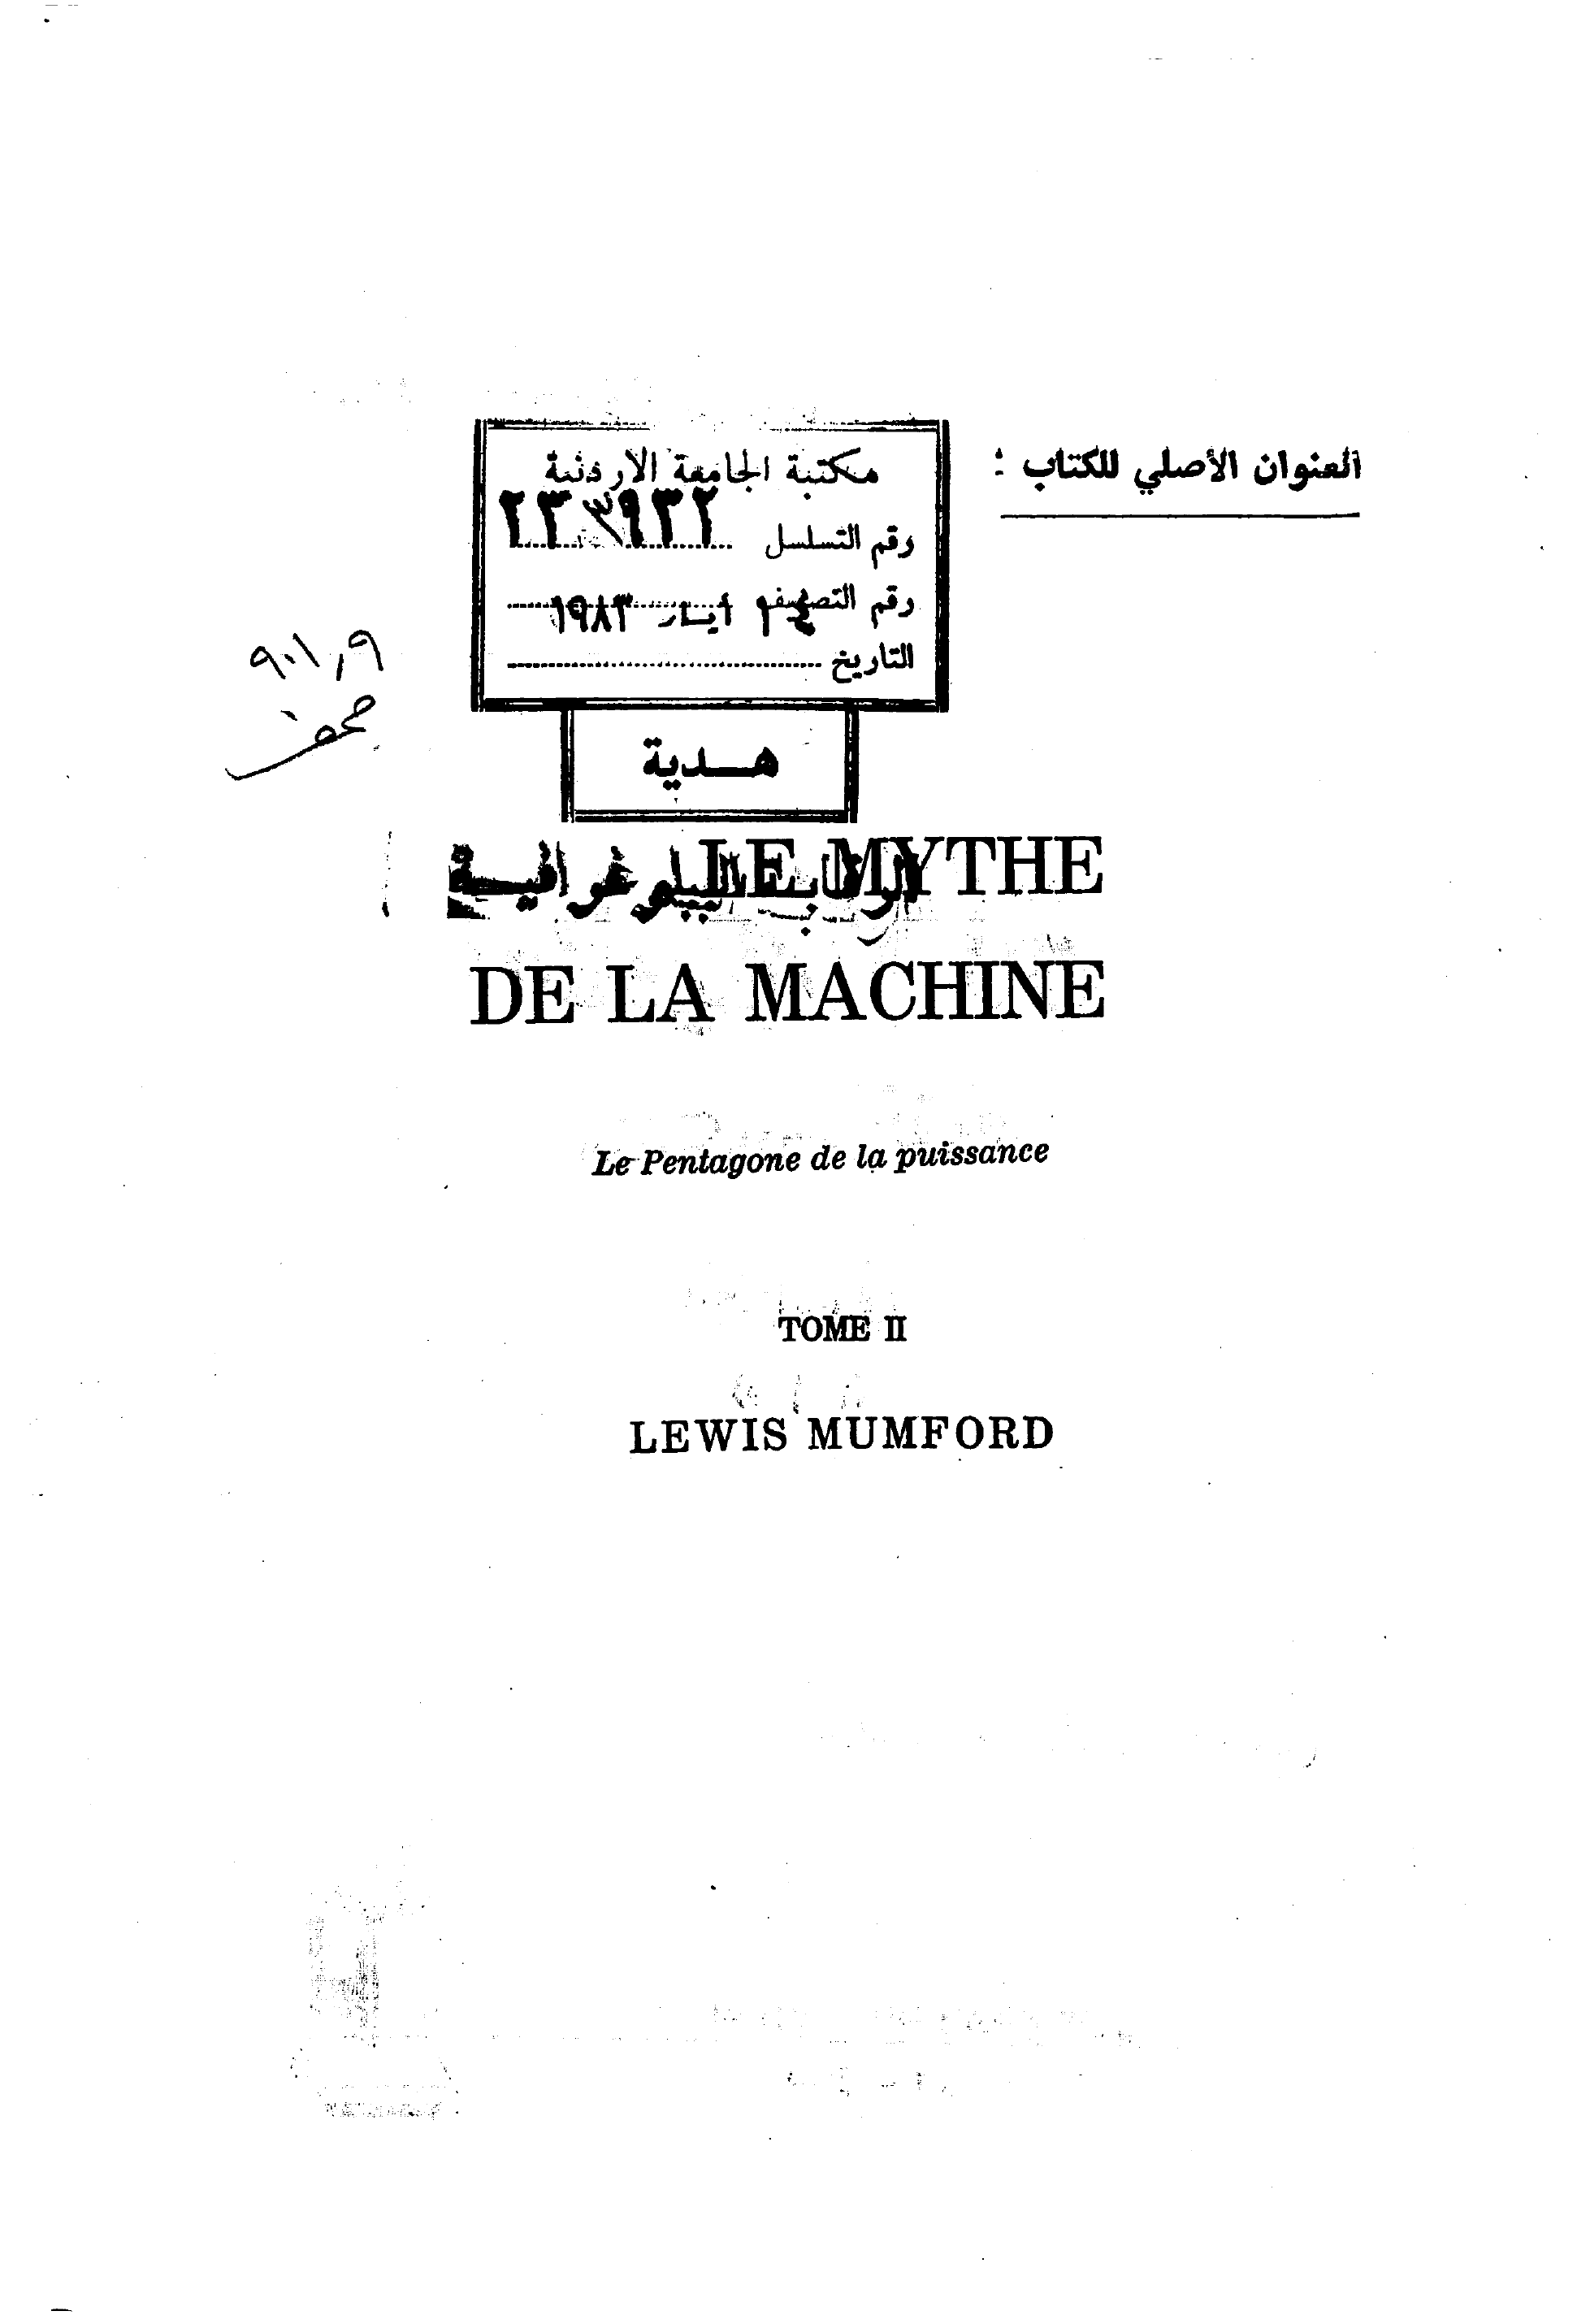 العنوان الأصلي للكتاب :
مكتبة الجامعة الاردنية
رقم التسلسل
رقم التصنيف
أيار ١٩٨٣
التاريخ
٩٠١,٩
هدية
LE MYTHE
DE LA MACHINE
Le Pentagone de la puissance
TOME II
LEWIS MUMFORD